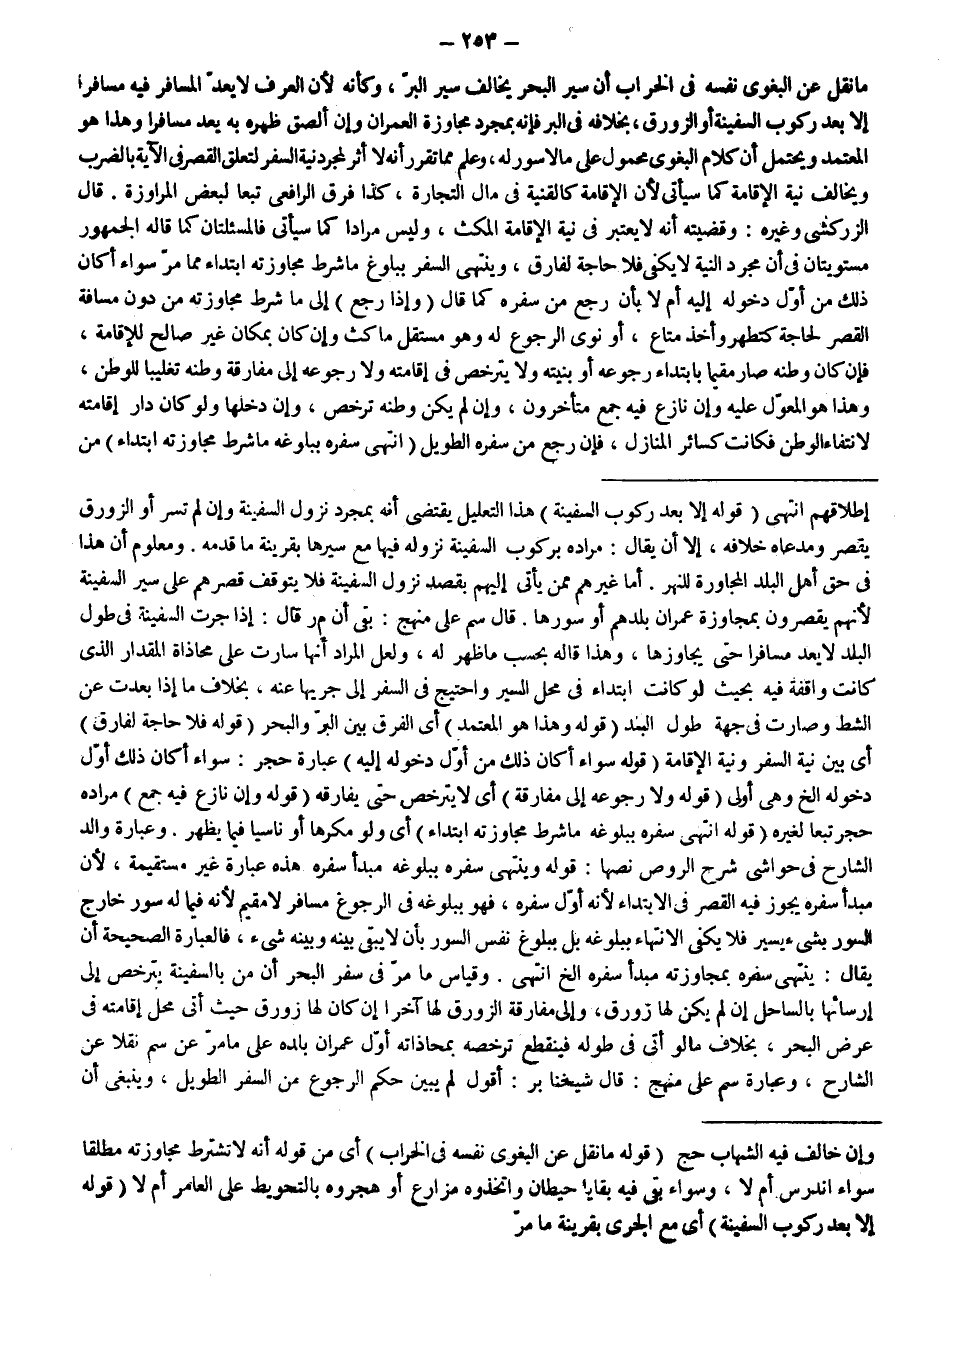 — ٢٥٣ —
مانقل عن البغوى نفسه فى الخراب أن سير البحر يخالف سير البرّ ، وكأنه لأن العرف لايعدّ المسافر فيه مسافرا
إلا بعد ركوب السفينة أو الزورق ، بخلافه فى البر فإنه بمجرد مجاوزة العمران وإن ألصق ظهره به يعد مسافرا وهذا هو
المعتمد ويحتمل أن كلام البغوى محمول على مالاسور له ، وعلم مما تقرر أنه لا أثر لمجرد نية السفر لتعلق القصر فى الآية بالضرب
ويخالف نية الإقامة كما سيأتى لأن الإقامة كالقنية فى مال التجارة ، كذا فرق الرافعى تبعا لبعض المراوزة . قال
الزركشى وغيره : وقضيته أنه لايعتبر فى نية الإقامة المكث ، وليس مرادا كما سيأتى فالمسئلتان كما قاله الجمهور
مستويتان فى أن مجرد النية لايكفى فلا حاجة لفارق ، وينتهى السفر ببلوغ ماشرط مجاوزته ابتداء مما مرّ سواء أكان
ذلك من أوّل دخوله إليه أم لا بأن رجع من سفره كما قال ( وإذا رجع ) إلى ما شرط مجاوزته من دون مسافة
القصر لحاجة كتطهر وأخذ متاع ، أو نوى الرجوع له وهو مستقل ماكث وإن كان بمكان غير صالح للإقامة ،
فإن كان وطنه صار مقيما بابتداء رجوعه أو بنيته ولا يترخص فى إقامته ولا رجوعه إلى مفارقة وطنه تغليبا للوطن ،
وهذا هو المعوّل عليه وإن نازع فيه جمع متأخرون ، وإن لم يكن وطنه ترخص ، وإن دخلها ولو كان دار إقامته
لانتفاء الوطن فكانت كسائر المنازل ، فإن رجع من سفره الطويل ( انتهى سفره ببلوغه ماشرط مجاوزته ابتداء ) من
إطلاقهم انتهى ( قوله إلا بعد ركوب السفينة ) هذا التعليل يقتضى أنه بمجرد نزول السفينة وإن لم تسر أو الزورق
يقصر ومدعاه خلافه ، إلا أن يقال : مراده بركوب السفينة نزوله فيها مع سيرها بقرينة ما قدمه . ومعلوم أن هذا
فى حق أهل البلد المجاورة للنهر . أما غيرهم ممن يأتى إليهم بقصد نزول السفينة فلا يتوقف قصرهم على سير السفينة
لأنهم يقصرون بمجاوزة عمران بلدهم أو سورها . قال سم على منهج : بقى أن مر قال : إذا جرت السفينة فى طول
البلد لايعد مسافرا حتى يجاوزها ، وهذا قاله بحسب ماظهر له ، ولعل المراد أنها سارت على محاذاة المقدار الذى
كانت واقفة فيه بحيث لو كانت ابتداء فى محل السير واحتيج فى السفر إلى جريها عنه ، بخلاف ما إذا بعدت عن
الشط وصارت فى جهة طول البلد ( قوله وهذا هو المعتمد ) أى الفرق بين البرّ والبحر ( قوله فلا حاجة لفارق )
أى بين نية السفر ونية الإقامة ( قوله سواء أكان ذلك من أوّل دخوله إليه ) عبارة حجر : سواء أكان ذلك أوّل
دخوله الخ وهى أولى ( قوله ولا رجوعه إلى مفارقة ) أى لايترخص حتى يفارقه ( قوله وإن نازع فيه جمع ) مراده
حجر تبعا لغيره ( قوله انتهى سفره ببلوغه ماشرط مجاوزته ابتداء ) أى ولو مكرها أو ناسيا فيما يظهر . وعبارة والد
الشارح فى حواشى شرح الروض نصها : قوله وينتهى سفره ببلوغه مبدأ سفره هذه عبارة غير مستقيمة ، لأن
مبدأ سفره يجوز فيه القصر فى الابتداء لأنه أوّل سفره ، فهو ببلوغه فى الرجوع مسافر لامقيم لأنه فيما له سور خارج
السور بشىء يسير فلا يكفى الانتهاء ببلوغه بل ببلوغ نفس السور بأن لايبقى بينه وبينه شىء ، فالعبارة الصحيحة أن
يقال : ينتهى سفره بمجاوزته مبدأ سفره الخ انتهى . وقياس ما مرّ فى سفر البحر أن من بالسفينة يترخص إلى
إرسائها بالساحل إن لم يكن لها زورق ، وإلى مفارقة الزورق لها آخرا إن كان لها زورق حيث أتى محل إقامته فى
عرض البحر ، بخلاف مالو أتى فى طوله فينقطع ترخصه بمحاذاته أوّل عمران بلده على مامرّ عن سم نقلا عن
الشارح ، وعبارة سم على منهج : قال شيخنا بر : أقول لم يبين حكم الرجوع من السفر الطويل ، وينبغى أن
وإن خالف فيه الشهاب حج ( قوله مانقل عن البغوى نفسه فى الخراب ) أى من قوله أنه لاتشترط مجاوزته مطلقا
سواء اندرس أم لا ، وسواء بقى فيه بقايا حيطان واتخذوه مزارع أو هجروه بالتحويط على العامر أم لا ( قوله
إلا بعد ركوب السفينة ) أى مع الجرى بقرينة ما مرّ